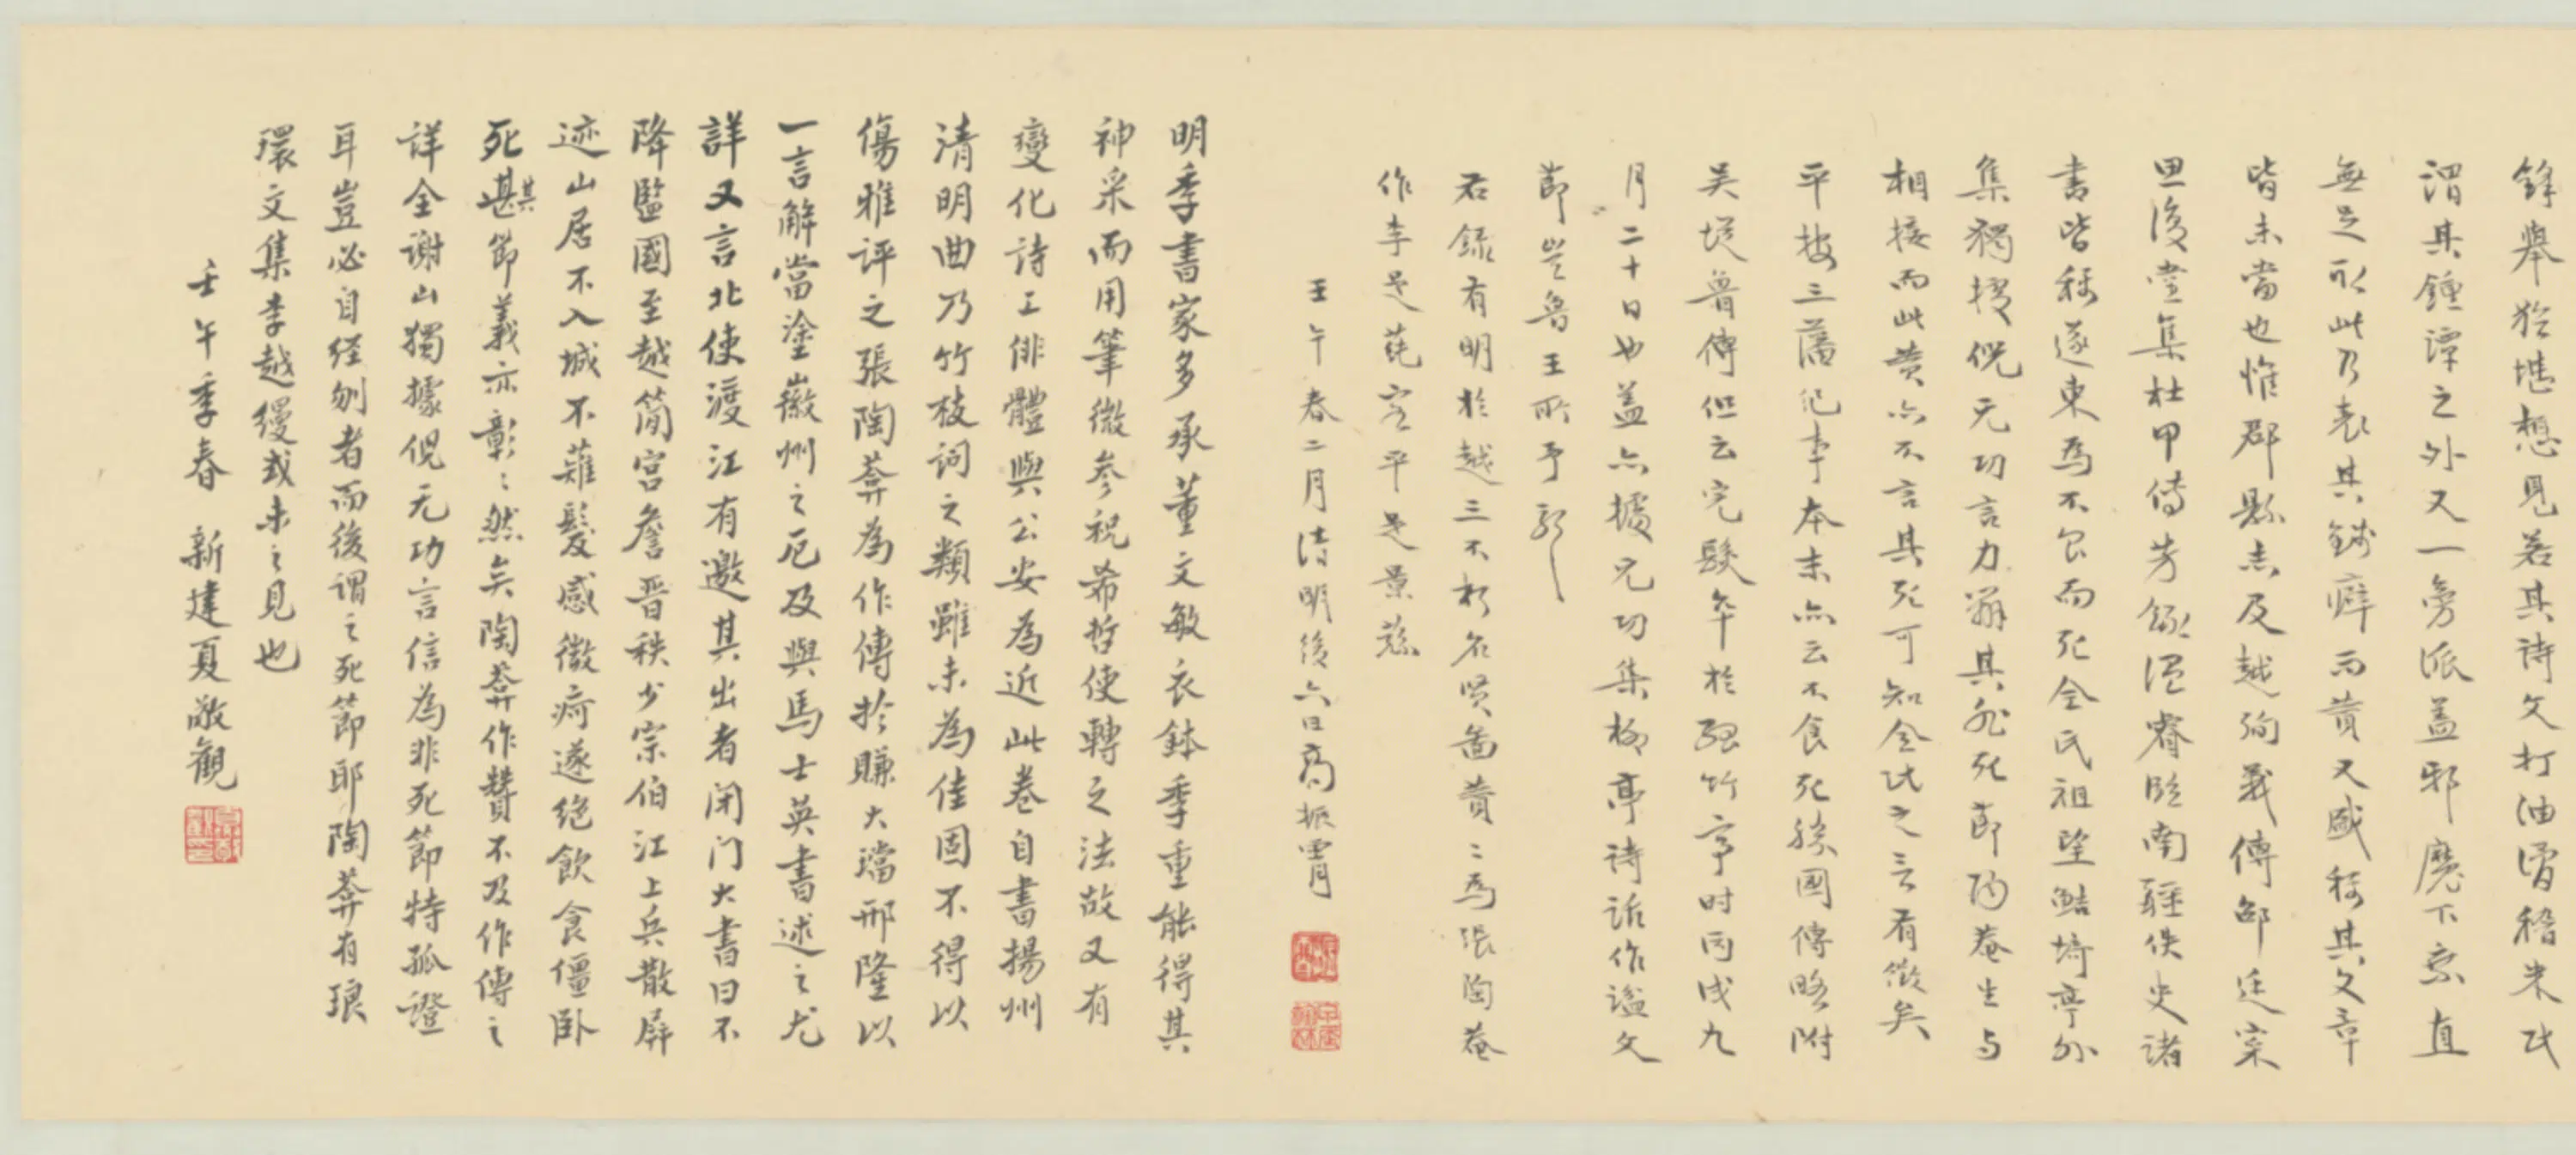 鋒舉猶堪想見若其詩文打油滑稽朱氏
謂其鍾譚之外又一旁派蓋邪魔下乘直
無足取此乃表其錢癖而黃又盛稱其文章
皆未當也惟郡縣志及越殉義傳邵廷寀
思復堂集杜甲傳芳錄溫睿臨南疆佚史諸
書皆稱遂東為不食而死全氏祖望鮚埼亭外
集獨據倪无功言力辨其非死節陶菴生与
相接而此贊亦不言其死可知全氏之言有徵矣
平按三藩紀事本末亦云不食死勝國傳略附
吳從魯傳但云完髮卒於孤竹亭时丙戌九
月二十日也蓋亦據无功集柳亭詩話作謚文
節豈魯王所予耶
君錄有明於越三不朽名賢啚贊二為張陶菴
作李是蒓客平是景蓀
壬午春二月清明後六日高振霄
明季書家多承董文敏衣鉢季重能得其
神采而用筆微參祝希哲使轉之法故又有
變化詩工俳體與公安為近此卷自書揚州
清明曲乃竹枝詞之類雖未為佳固不得以
傷雅评之張陶葊為作傳於賺大璫邢隆以
一言解當塗徽州之厄及與馬士英書述之尤
詳又言北使渡江有邀其出者闭门大書曰不
降監國至越简宮詹晋秩少宗伯江上兵散屏
迹山居不入城不薙髮感微疴遂绝飲食僵卧
死甚其節義亦彰〻然矣陶葊作贊不及作傳之
详全谢山獨據倪无功言信為非死節特孤證
耳豈必自经刎者而後謂之死節耶陶葊有琅
環文集李越縵或未之見也
壬午季春 新建夏敬觀